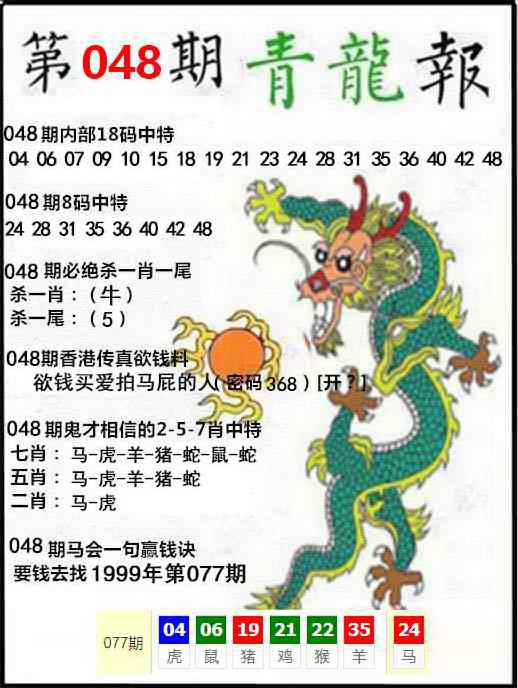 第048期青龍報
048期内部18码中特
04 06 07 09 10 15 18 19 21 23 24 28 31 35 36 40 42 48
048期8码中特
24 28 31 35 36 40 42 48
048 期必绝杀一肖一尾
杀一肖：（牛）
杀一尾：（5）
048期香港传真欲钱料
欲钱买爱拍马屁的人(密码368）[开？]
048期鬼才相信的2-5-7肖中特
七肖： 马-虎-羊-猪-蛇-鼠-蛇
五肖： 马-虎-羊-猪-蛇
二肖： 马-虎
048 期马会一句赢钱诀
要钱去找1999年第077期
077期 04 06 19 21 22 35 24
虎 鼠 猪 鸡 猴 羊 马